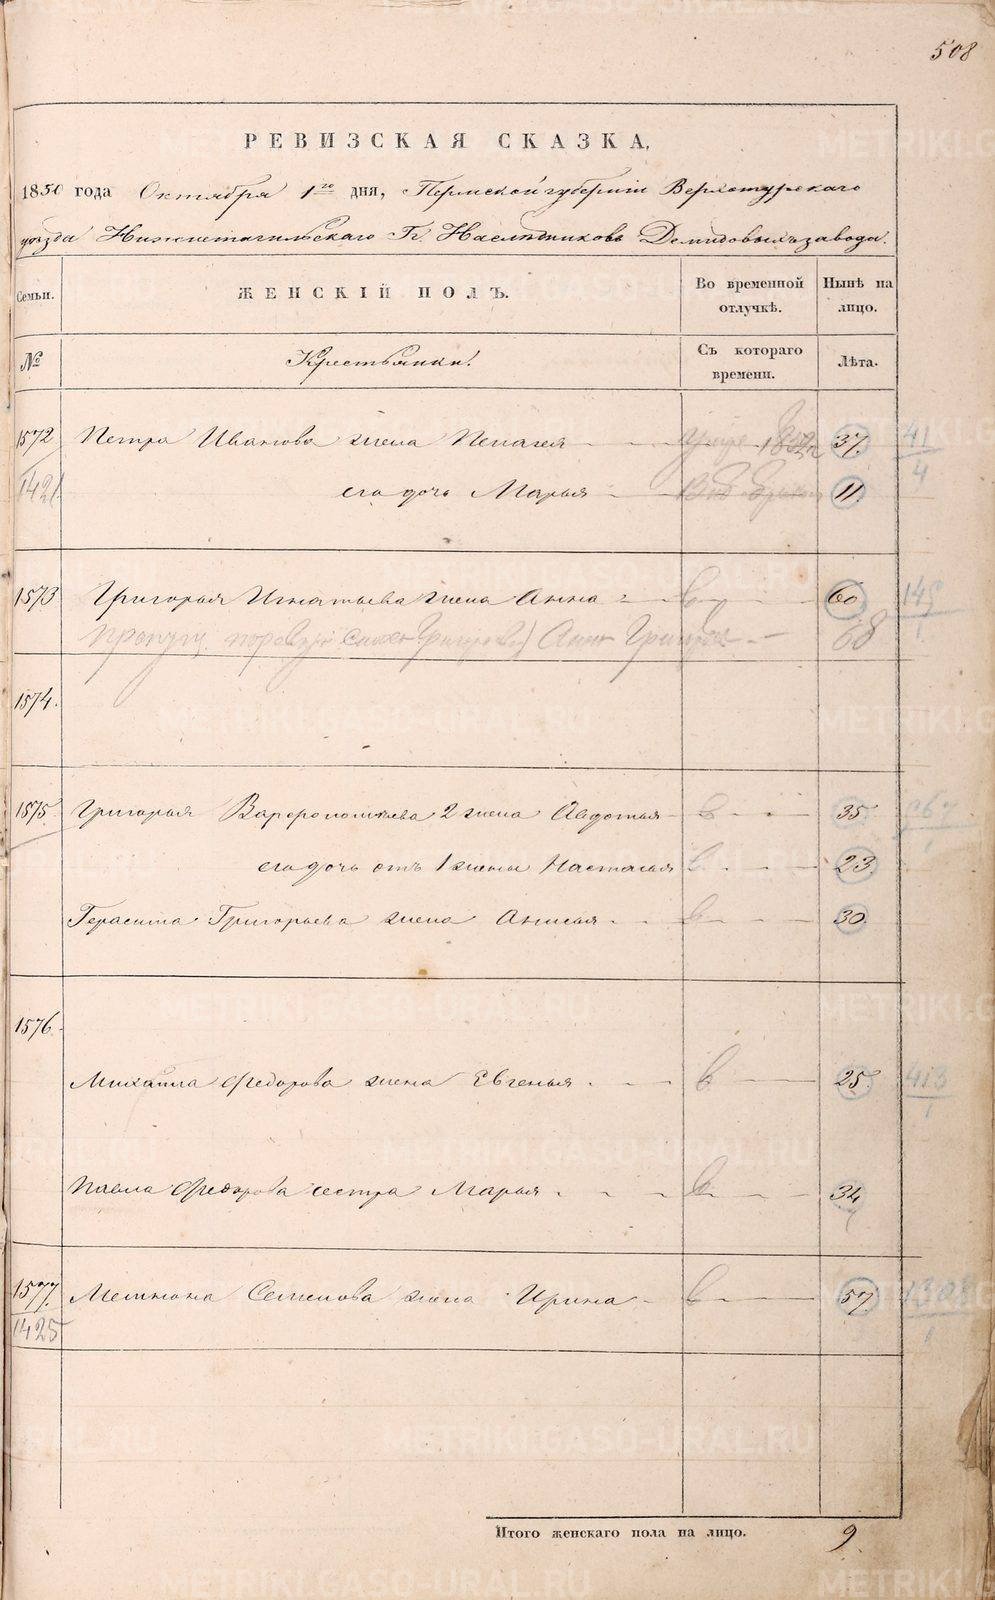 508
РЕВИЗСКАЯ СКАЗКА.
1850 года Октября 1го дня, Пермской губернiи Верхотурскаго
уезда Нижнетагильскаго Гг. Наследниковъ Демидовыхъ завода.
Семьи. ЖЕНСКIЙ ПОЛЪ. Во временной отлучкѣ. Нынѣ на лицо.
№ Крестьянки. Съ котораго времени. Лѣта.
1572 Петра Иванова жена Пелагея 1852 37. 41
1421 его дочь Марья 11. 4
1573 Григорья Игнатьева жена Анна 60 149
Анна 68 1
1574.
1875. Григорья Варфоломѣева 2 жена Авдотья в 35
его дочь отъ 1 жены Настасья в 23
Герасима Григорьева жена Анисья в 30.
1576.
Михаила Федорова жена Евгенья в 25 413
1
Павла Федорова сестра Марья в 34
1577. Семенова жена Ирина в 57
1425 1
Итого женскаго пола на лицо. 9
METRIKI.GASO-URAL.RU